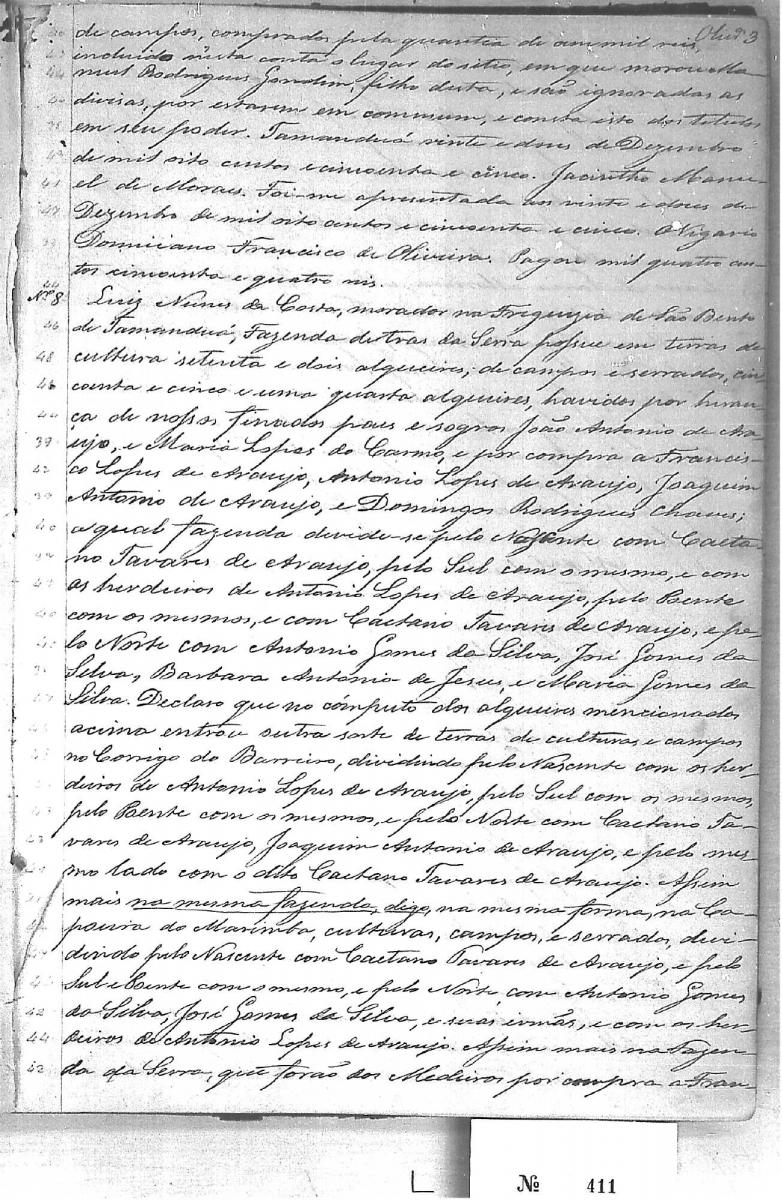 de campos, comprados pela quantia de cem mil reis,
incluido nesta conta o lugar do sitio, em que morou Ma-
noel Rodrigues Gondim, filho desta, e são ignoradas as
divisas, por estarem em commum, e consta isto dos titulos
em seu poder. Tamanduá vinte e dous de Dezembro
de mil oito centos e cincoenta e cinco. Jacintho Mano-
el de Moraes. Foi-me apresentada aos vinte e dous de
Dezembro de mil oito centos e cincoenta e cinco. O Vigario
Domiciano Francisco de Oliveira. Pagou mil quatro cen-
tos cincoenta e quatro reis.
Nº 8 Luiz Nunes da Costa, morador na Freguezia de São Bento
de Tamanduá, Fazenda detras da Serra possue em terras de
cultura setenta e dois alqueires, de campos e serrados, cin-
coenta e cinco e uma quarta alqueires, havidos por heran-
ça de nossos finados paes e sogros João Antonio de Ara-
ujo, e Maria Lopes do Carmo, e por compra a Francis-
co Lopes de Araujo, Antonio Lopes de Araujo, Joaquim
Antonio de Araujo, e Domingos Rodrigues Chaves;
a qual fazenda divide-se pelo Nascente com Caeta-
no Tavares de Araujo, pelo Sul com o mesmo, e com
os herdeiros de Antonio Lopes de Araujo, pelo Poente
com os mesmos, e com Caetano Tavares de Araujo, e pe-
lo Norte com Antonio Gomes da Silva, José Gomes da
Silva, Barbara Antonia de Jesus, e Maria Gomes da
Silva. Declaro que no cómputo dos alqueires mencionados
acima entrou outra sorte de terras de culturas e campos
no Corrigo do Barreiro, dividindo pelo Nascente com os her-
deiros de Antonio Lopes de Araujo, pelo Sul com os mesmos,
pelo Poente com os mesmos, e pelo Norte com Caetano Ta-
vares de Araujo, Joaquim Antonio de Araujo, e pelo mes-
mo lado com o dito Caetano Tavares de Araujo. Assim
mais na mesma fazenda, digo, na mesma forma, na Ca-
poeira do Marimba, culturas, campos, e serrados, divi-
dindo pelo Nascente com Caetano Tavares de Araujo, e pelo
Sul e Poente com o mesmo, e pelo Norte com Antonio Gomes
da Silva, José Gomes da Silva, e suas irmãs, e com os her-
deiros de Antonio Lopes de Araujo. Assim mais na Fazen-
da da Serra, que forão dos Medeiros por compra a Fran-
Nº 411